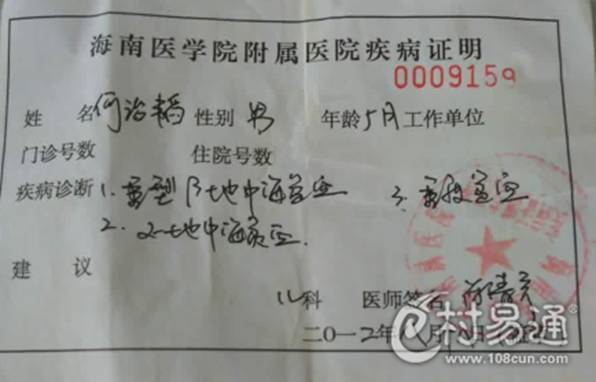 海南医学院附属医院疾病证明
0009159
姓名 何治韬 性别 男 年龄 5月 工作单位
门诊号数 住院号数
疾病诊断 1. 重型β地中海贫血 3. 重度贫血
2. α-地中海贫血.
建议
儿科 医师签名
二〇一二年八月
村易通
www.108cun.com